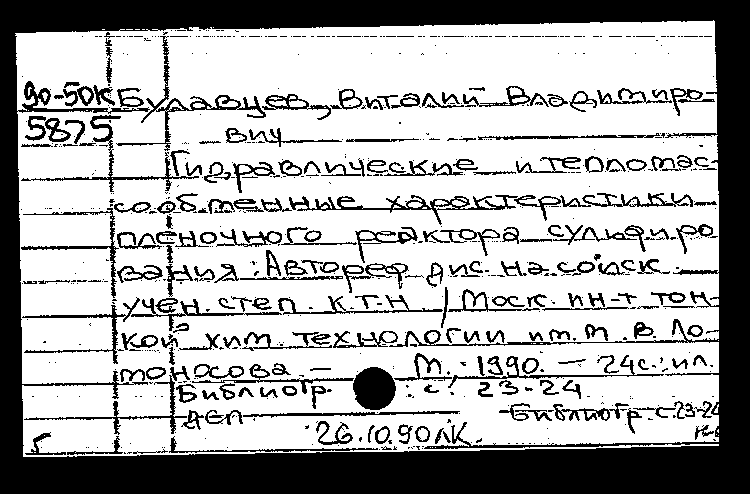 90-50К Булавцев, Виталий Владимиро-
5875 вич
Гидравлические и тепломас-
сообменные характеристики
пленочного реактора сульфиро
вания : Автореф дис. на соиск.
учен. степ. К.Т.Н / Моск. ин-т тон-
кой хим. технологии им. М. В. Ло-
моносова. — М. 1990. — 24с.: ил.
Библиогр. : с. 23-24
ДЕП Библиогр. с. 23-24
5 26.10.90 ЛК.